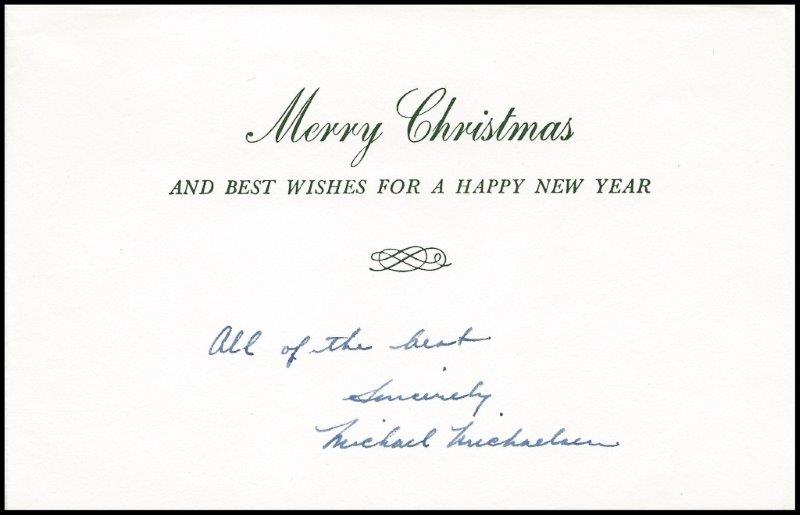 Merry Christmas
AND BEST WISHES FOR A HAPPY NEW YEAR
All of the best
Sincerely
Michael Michaelsen